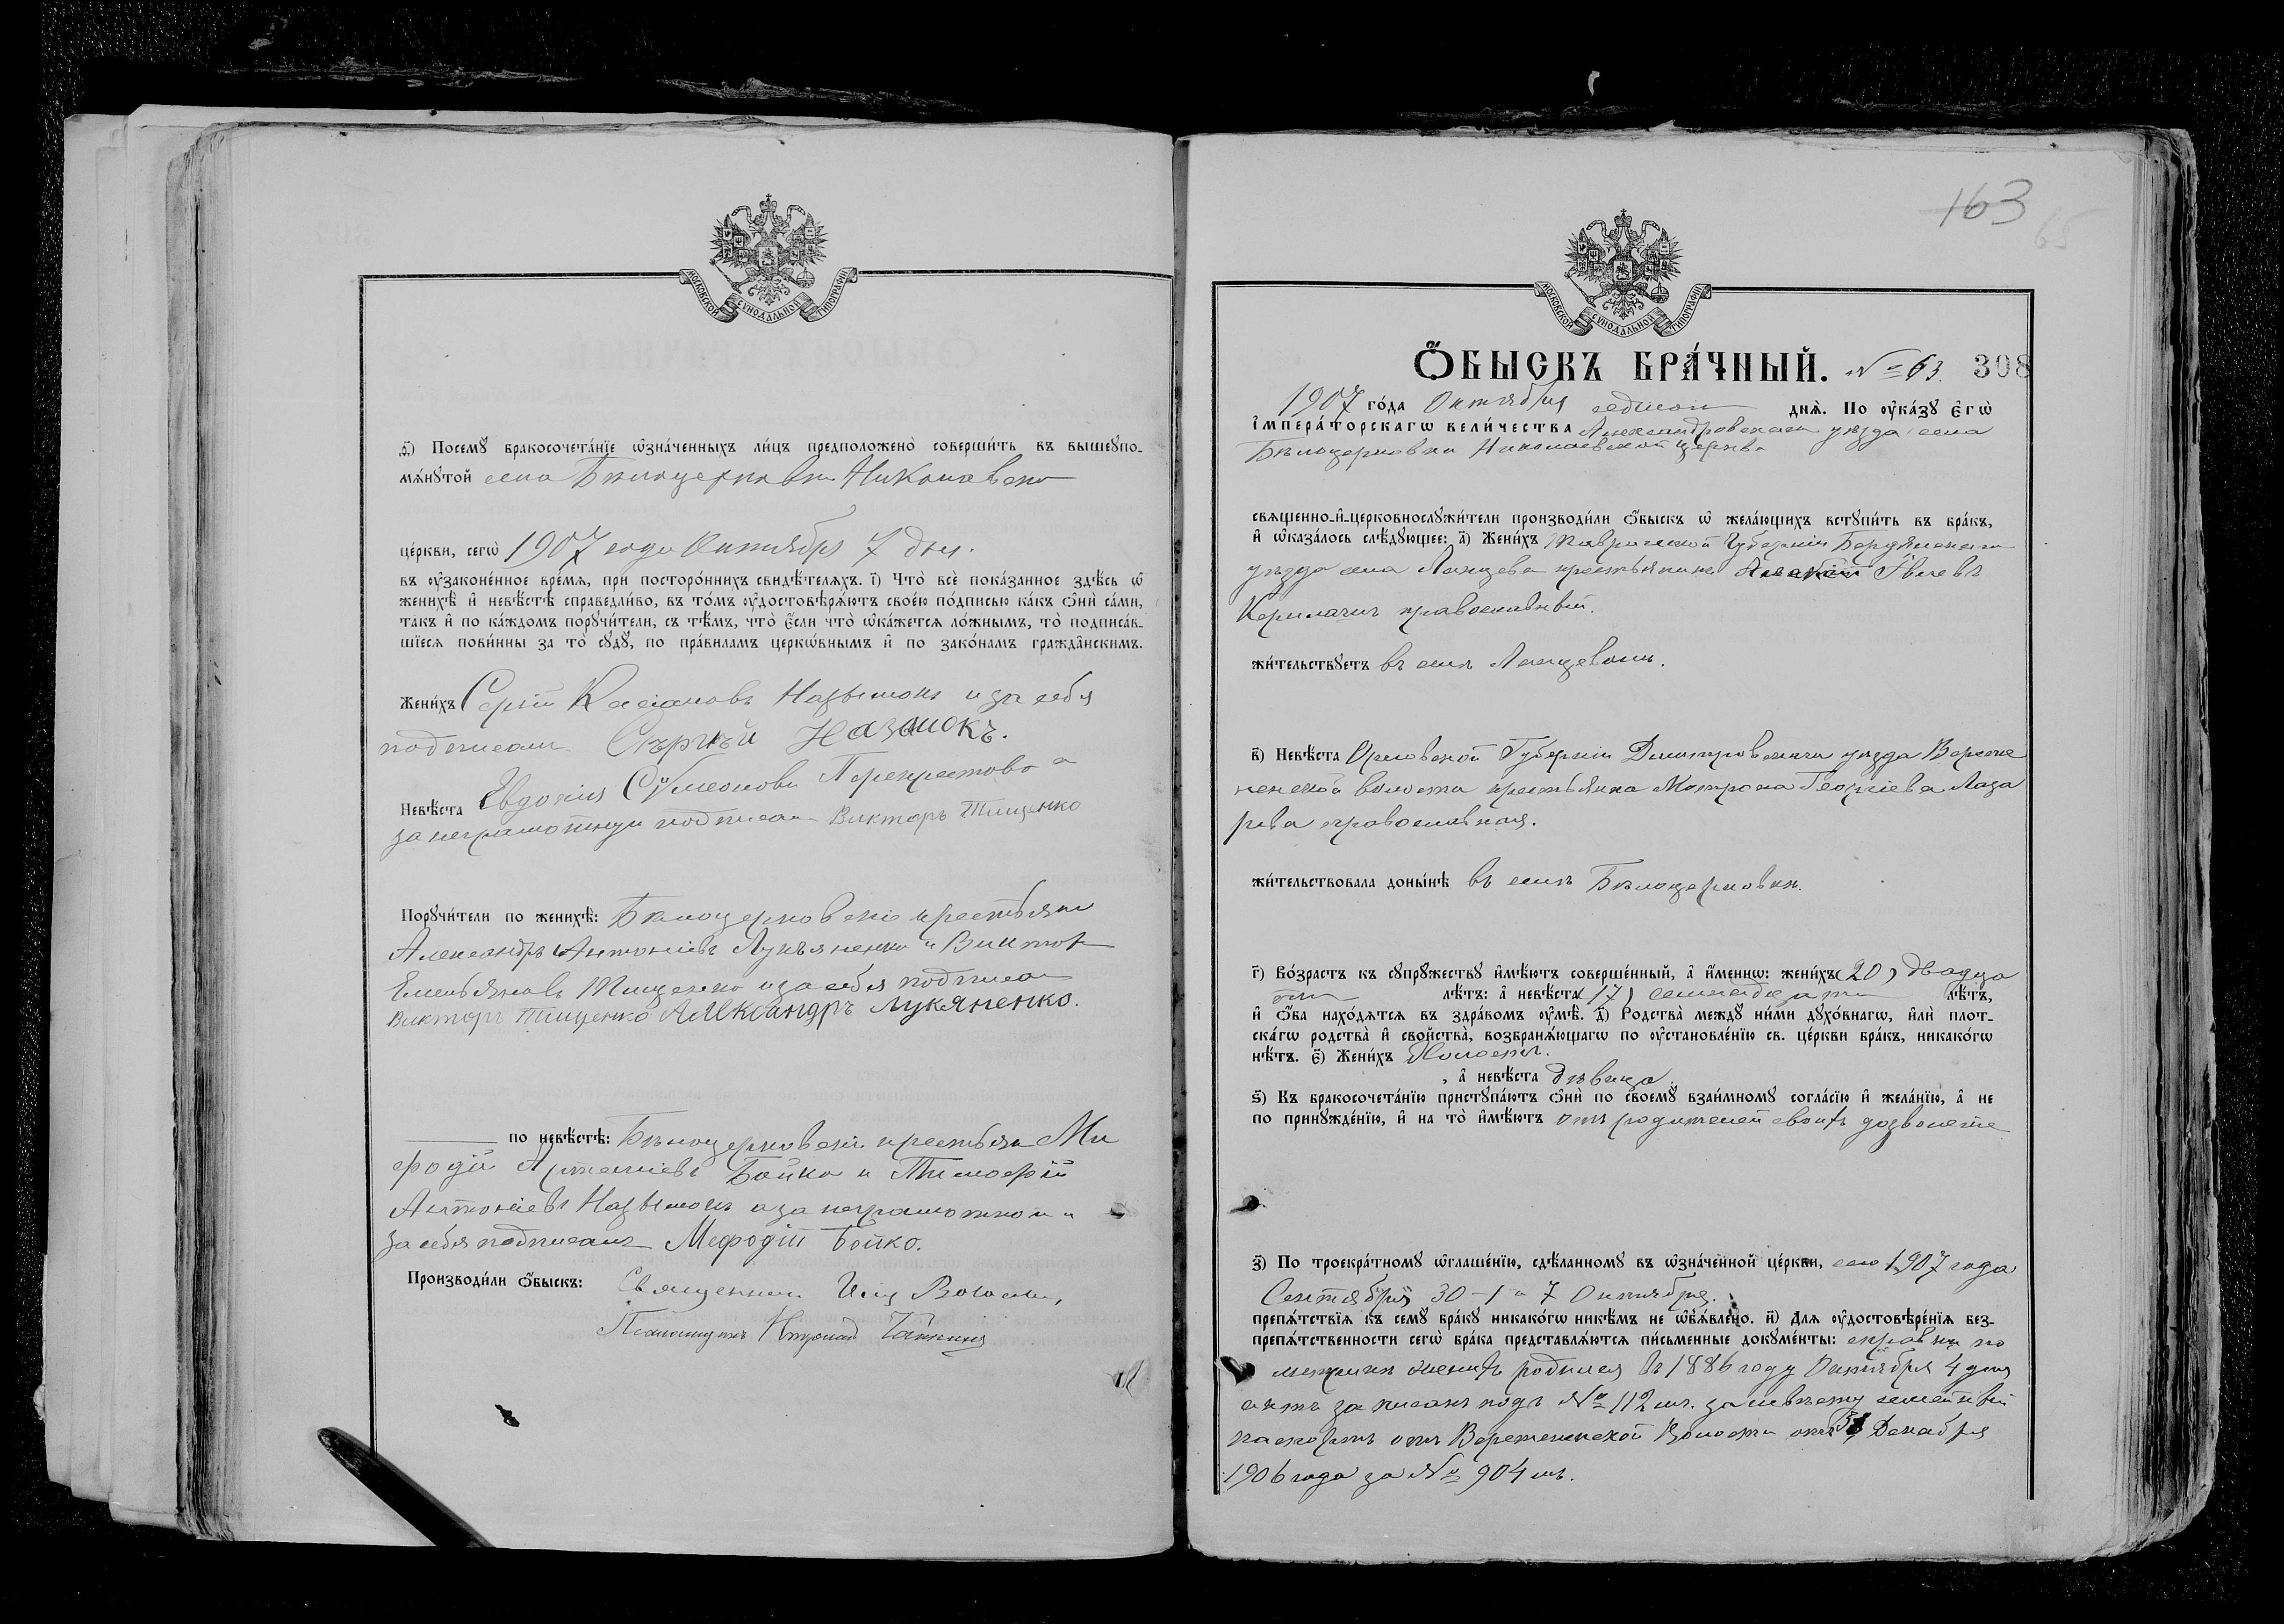 МОСКОВСКОЙ СѴНОДАЛЬНОЙ ТИПОГРАФІИ
ѳ҃) Посемꙋ бракосочета́нїе ѡ҆зна́ченныхъ ли́цъ предположено̀ соверши́ть въ вышеꙋпо-
мѧ́нꙋтой села Бѣлоцерковки Николаевской
це́ркви, сегѡ̀ 1907 года Октября 7 дня.
въ ᲂу҆зако́ненное вре́мѧ, при посторо́ннихъ свидѣ́телѧхъ. і҃) Что̀ всѐ пока́занное здѣ́сь ѡ҆
женихѣ̀ и҆ невѣ́стѣ справедли́во, въ то́мъ ᲂу҆достовѣрѧ́ютъ свое́ю по́дписью ка́къ ѻ҆нѝ са́ми,
та́къ и҆ по ка́ждомъ порꙋчи́тели, съ тѣ́мъ, что̀ є҆́сли что̀ ѡ҆ка́жетсѧ ло́жнымъ, то̀ подписа́в-
шїесѧ пови́нны за то̀ сꙋдꙋ̀, по пра́виламъ церкѡ́внымъ и҆ по зако́намъ гражда̑нскимъ.
Жени́хъ Сергій Касіановъ Назымокъ и за себя
подписалъ Сѣргѣй Назымокъ.
Невѣ́ста Евдокія Сѵмеонова Перекрестова а
за неграмотную подписалъ Викторъ Тищенко
Порꙋчи́тели по женихѣ̀: Бѣлоцерковскіе крестьяне
Александръ Антоніевъ Лукьяненко и Викторъ
Емельяновъ Тищенко и за себя подписал
Викторъ Тищенко Александръ Лукяненко.
по невѣ́стѣ: Бѣлоцерковскіе крестьяне Ме
фодій Бойко и Тимофей
Антоніевъ Назымокъ а за неграмотного и
за себя подписалъ Мефодій Бойко.
Производи́ли ѻ҆́быскъ: Священникъ
Псаломщикъ
163
МОСКОВСКОЙ СѴНОДАЛЬНОЙ ТИПОГРАФІИ
Ѻ҆́БЫСКЪ БРА́ЧНЫЙ. № 63. 308
1907 го́да Октября седмого днѧ̀. По ᲂу҆ка́зꙋ є҆гѡ̀
і҆мпера́торскагѡ вели́чества Александровскаго уѣзда села
Бѣлоцерковки Николаевской церкви
свѧще́нно-и҆-церковнослꙋжи́тели производи́ли ѻ҆́быскъ ѡ҆ жела́ющихъ встꙋпи́ть въ бра́къ,
и҆ ѡ҆каза́лось слѣ́дꙋющее: а҃) Жени́хъ Таврической Губерніи Бердянскаго
уѣзда села крестьянинъ
православный.
жи́тельствꙋетъ въ селѣ
в҃) Невѣ́ста Орловской Губерніи Дмитровскаго уѣзда
волости крестьянка Матрона Георгіева Лаза
рева православная.
жи́тельствовала доны́нѣ въ селѣ Бѣлоцерковкѣ.
г҃) Во́зрастъ къ сꙋпрꙋ́жествꙋ и҆мѣ́ютъ соверше́нный, а҆ и҆́меннѡ: жени́хъ (20) двадца
ти лѣ́тъ: а҆ невѣ́ста (17) семнадцати лѣ́тъ,
и҆ ѻ҆́ба нахо́дѧтсѧ въ здра́вомъ ᲂу҆мѣ̀. д҃) Родства̀ междꙋ̀ ни́ми дꙋхо́внагѡ, и҆лѝ плот-
ска́гѡ родства̀ и҆ сво́йства̀, возбранѧ́ющагѡ по ᲂу҆становле́нїю св. це́ркви бра́къ, никако́гѡ
нѣ́тъ. є҃) Жени́хъ Холостъ.
, а҆ невѣ́ста дѣвица
ѕ҃) Къ бракосочета́нїю пристꙋпа́ютъ ѻ҆нѝ по своемꙋ̀ взаи́мномꙋ согла́сїю и҆ жела́нїю, а҆ не
по принꙋжде́нїю, и҆ на то̀ и҆мѣ́ютъ отъ родителей своихъ дозволеніе
з҃) По троекра́тномꙋ ѡ҆глаше́нїю, сдѣ́ланномꙋ въ ѡ҆зна́ченной це́ркви, сего 1907 года
Сентября 30 – 1 и 7 Октября.
препѧ́тствїѧ къ семꙋ̀ бра́кꙋ никако́гѡ никѣ́мъ не ѡ҆б̾ѧ́влено. и҃) Длѧ ᲂу҆достовѣ́ренїѧ без-
препѧ́тственности сегѡ̀ бра́ка представлѧ́ютсѧ пи́сьменные докꙋме́нты: справки по
метрики женихъ родился въ 1886 году Октября 4 дня
актъ записанъ подъ № 112 мъ. за невѣсту семейный
паспортъ отъ Веретенинской Волости отъ Декабря
1906 года за № 904 мъ.